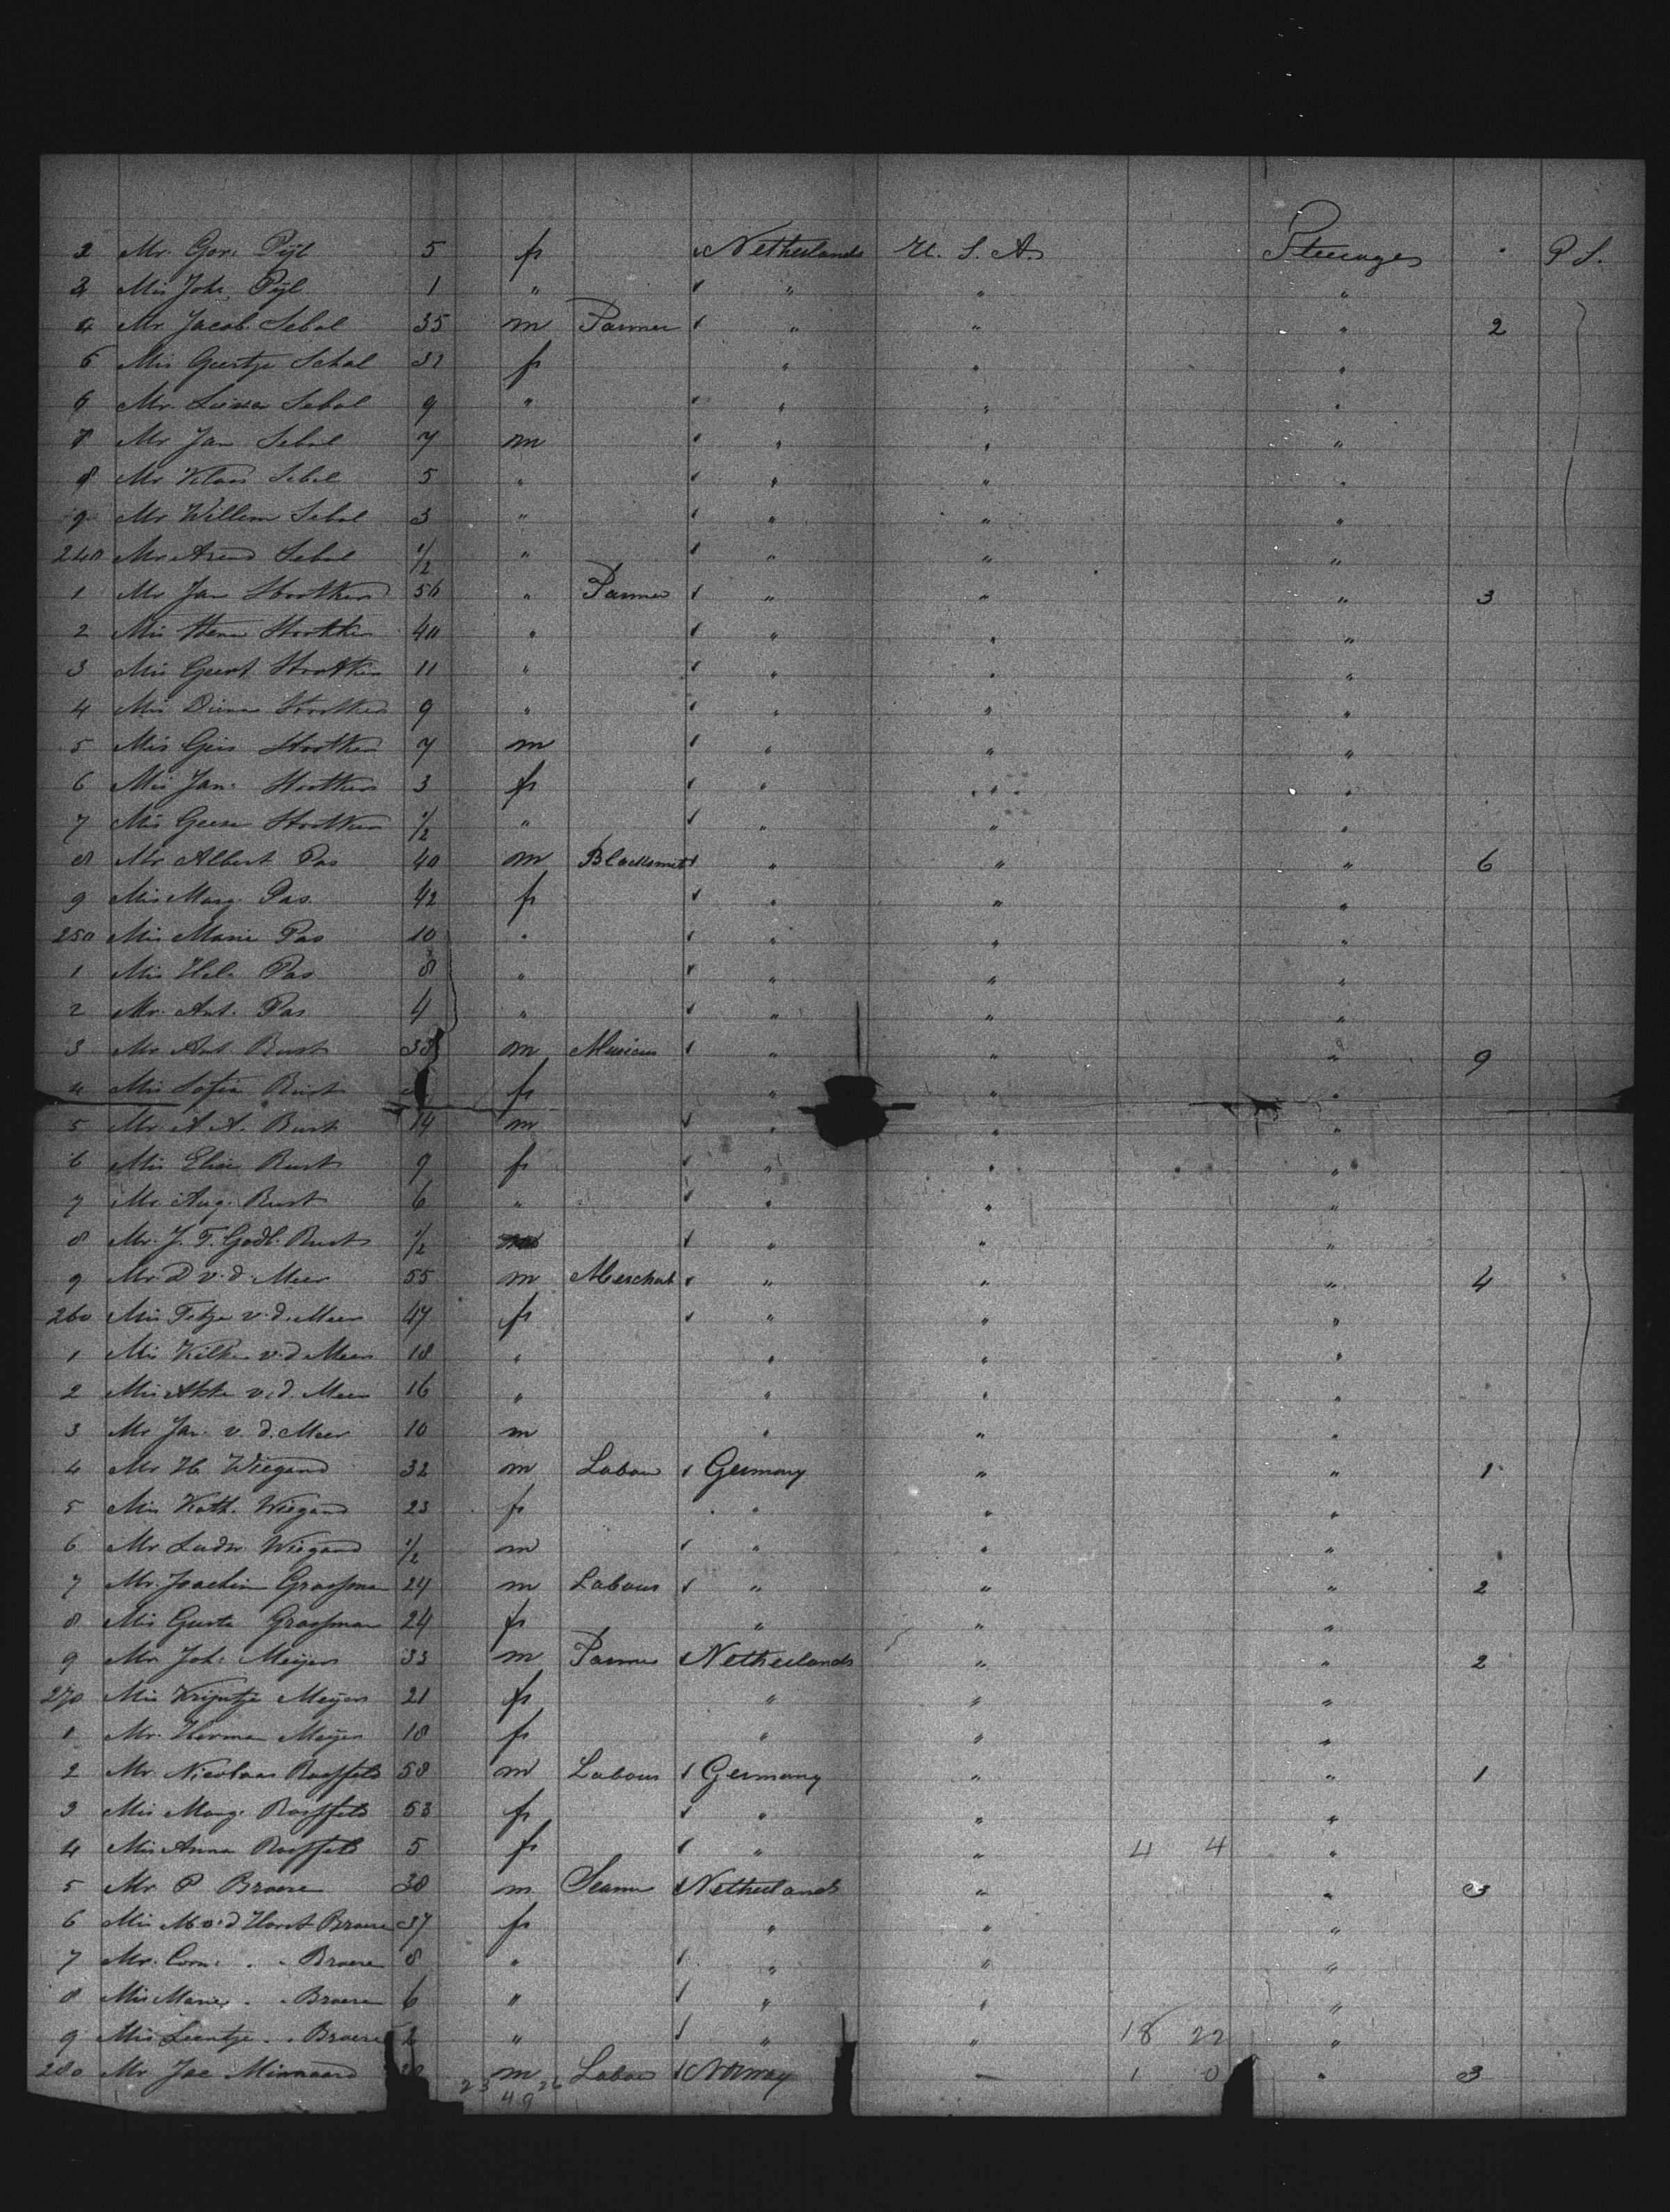 2 Mr. Gor. Pijl 5 f Netherlands U. S. A. Steerages P S.
3 Mis Joh. Pijl 1 " " " "
4 Mr. Jacob Schol 35 m Farmer " " " 2
5 Mis Geertje Schol 32 f " " "
6 Mr. Schol 9 " " " "
7 Mr Jan Schol 7 m " " "
8 Mr Klaas Schol 5 " " " "
9 Mr Willem Schol 3 " " " "
240 Mr Arend Schol 1/2 " " " "
1 Mr Jan Strotken 56 " Farmer " " " 3
2 Mis Hen Strotken 40 " " " "
3 Mis Geert Strotken 11 " " " "
4 Mis Diena Strotken 9 " " " "
5 Mis Geis Strotken 7 m " " "
6 Mis Jan. Strotken 3 f " " "
7 Mis Geese Strotken 1/2 " " " "
8 Mr Albert Pas 40 m Blacksmit " " " 6
9 Mis Marg. Pas 42 f " " "
250 Mis Marie Pas 10 " " " "
1 Mis Hel. Pas 8 " " " "
2 Mr. Ant. Pas 4 " " " "
3 Mr Ant. Bust 38 m Musicus " " " 9
4 Mis Sofia Bust f " " "
5 Mr A A. Bust 14 m " " "
6 Mis Elise Bust 9 f " " "
7 Mr Aug. Bust 6 " " " "
8 Mr. J. F. Godl. Bust 1/2 " " "
9 Mr D v. d. Meer 55 m Merchat " " " 4
260 Mis Fetje v. d. Meer 47 f " " "
1 Mis v. d Meer 18 " " " "
2 Mis Akke v. d. Meer 16 " " " "
3 Mr Jan. v. d. Meer 10 m " " "
4 Mr H. Wiegand 32 m Labou Germany " " 1
5 Mis Kath. Wiegand 23 f " " "
6 Mr Ludw. Wiegand 1/2 m " " "
7 Mr. Joachim Grossman 24 m Labour " " " 2
8 Mis Guste Grossman 24 f " " "
9 Mr Joh. Meijer 33 m Farmer Netherlands " " 2
270 Mis Krijntje Meijer 21 f " " "
1 Mr. Herman Meijer 18 f " " "
2 Mr. Nicolaas Rossfeld 58 m Labour Germany " " 1
3 Mis Marg. Rossfeld 53 f " " "
4 Mis Anna Rossfeld 5 f " " 4 4 "
5 Mr P Broere 38 m Seaman Netherlands " " 3
6 Mis M v. d Horst Broere 37 f " " "
7 Mr. Corn. " " Broere 8 " " " "
8 Mis Marie " " Broere 6 " " " "
9 Mis Leentje " " Broere 2 " " " 18 22 "
280 Mr Jac Minnaard m Labou Norway — 1 0 " 3
23 49 26